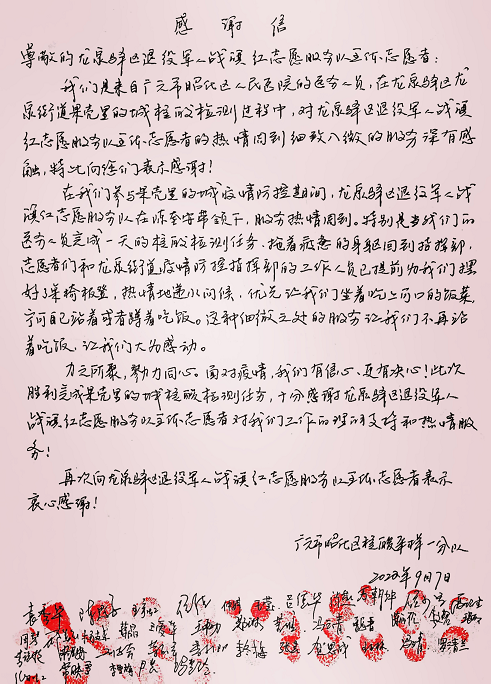 感谢信
尊敬的龙泉驿区退役军人战旗红志愿服务队全体志愿者:
我们是来自广元市昭化区人民医院的医务人员,在龙泉驿区龙
泉街道果壳里的城核酸检测过程中,对龙泉驿区退役军人战旗
红志愿服务队全体志愿者的热情周到细致入微的服务深有感
触,特此向你们表示感谢!
在我们参与果壳里的城疫情防控期间,龙泉驿区退役军人战
旗红志愿服务队在带领下,服务热情周到。特别是当我们的
医务人员完成一天的核酸检测任务、拖着疲惫的身躯回到指挥部,
志愿者们和龙泉街道疫情防控指挥部的工作人员已提前为我们摆
好了桌椅板凳,热情地递水问候,优先让我们坐着吃上可口的饭菜,
宁可自己站着或者蹲着吃饭。这种细微之处的服务让我们不再站
着吃饭,让我们大为感动。
力之所聚,勠力同心。面对疫情,我们有信心、更有决心!此次
胜利完成果壳里的城核酸检测任务,十分感谢龙泉驿区退役军人
战旗红志愿服务队全体志愿者对我们工作的理解支持和热情服
务!
再次向龙泉驿区退役军人战旗红志愿服务队全体志愿者表示
衷心感谢!
广元市昭化区核酸采样一分队
2022年9月7日